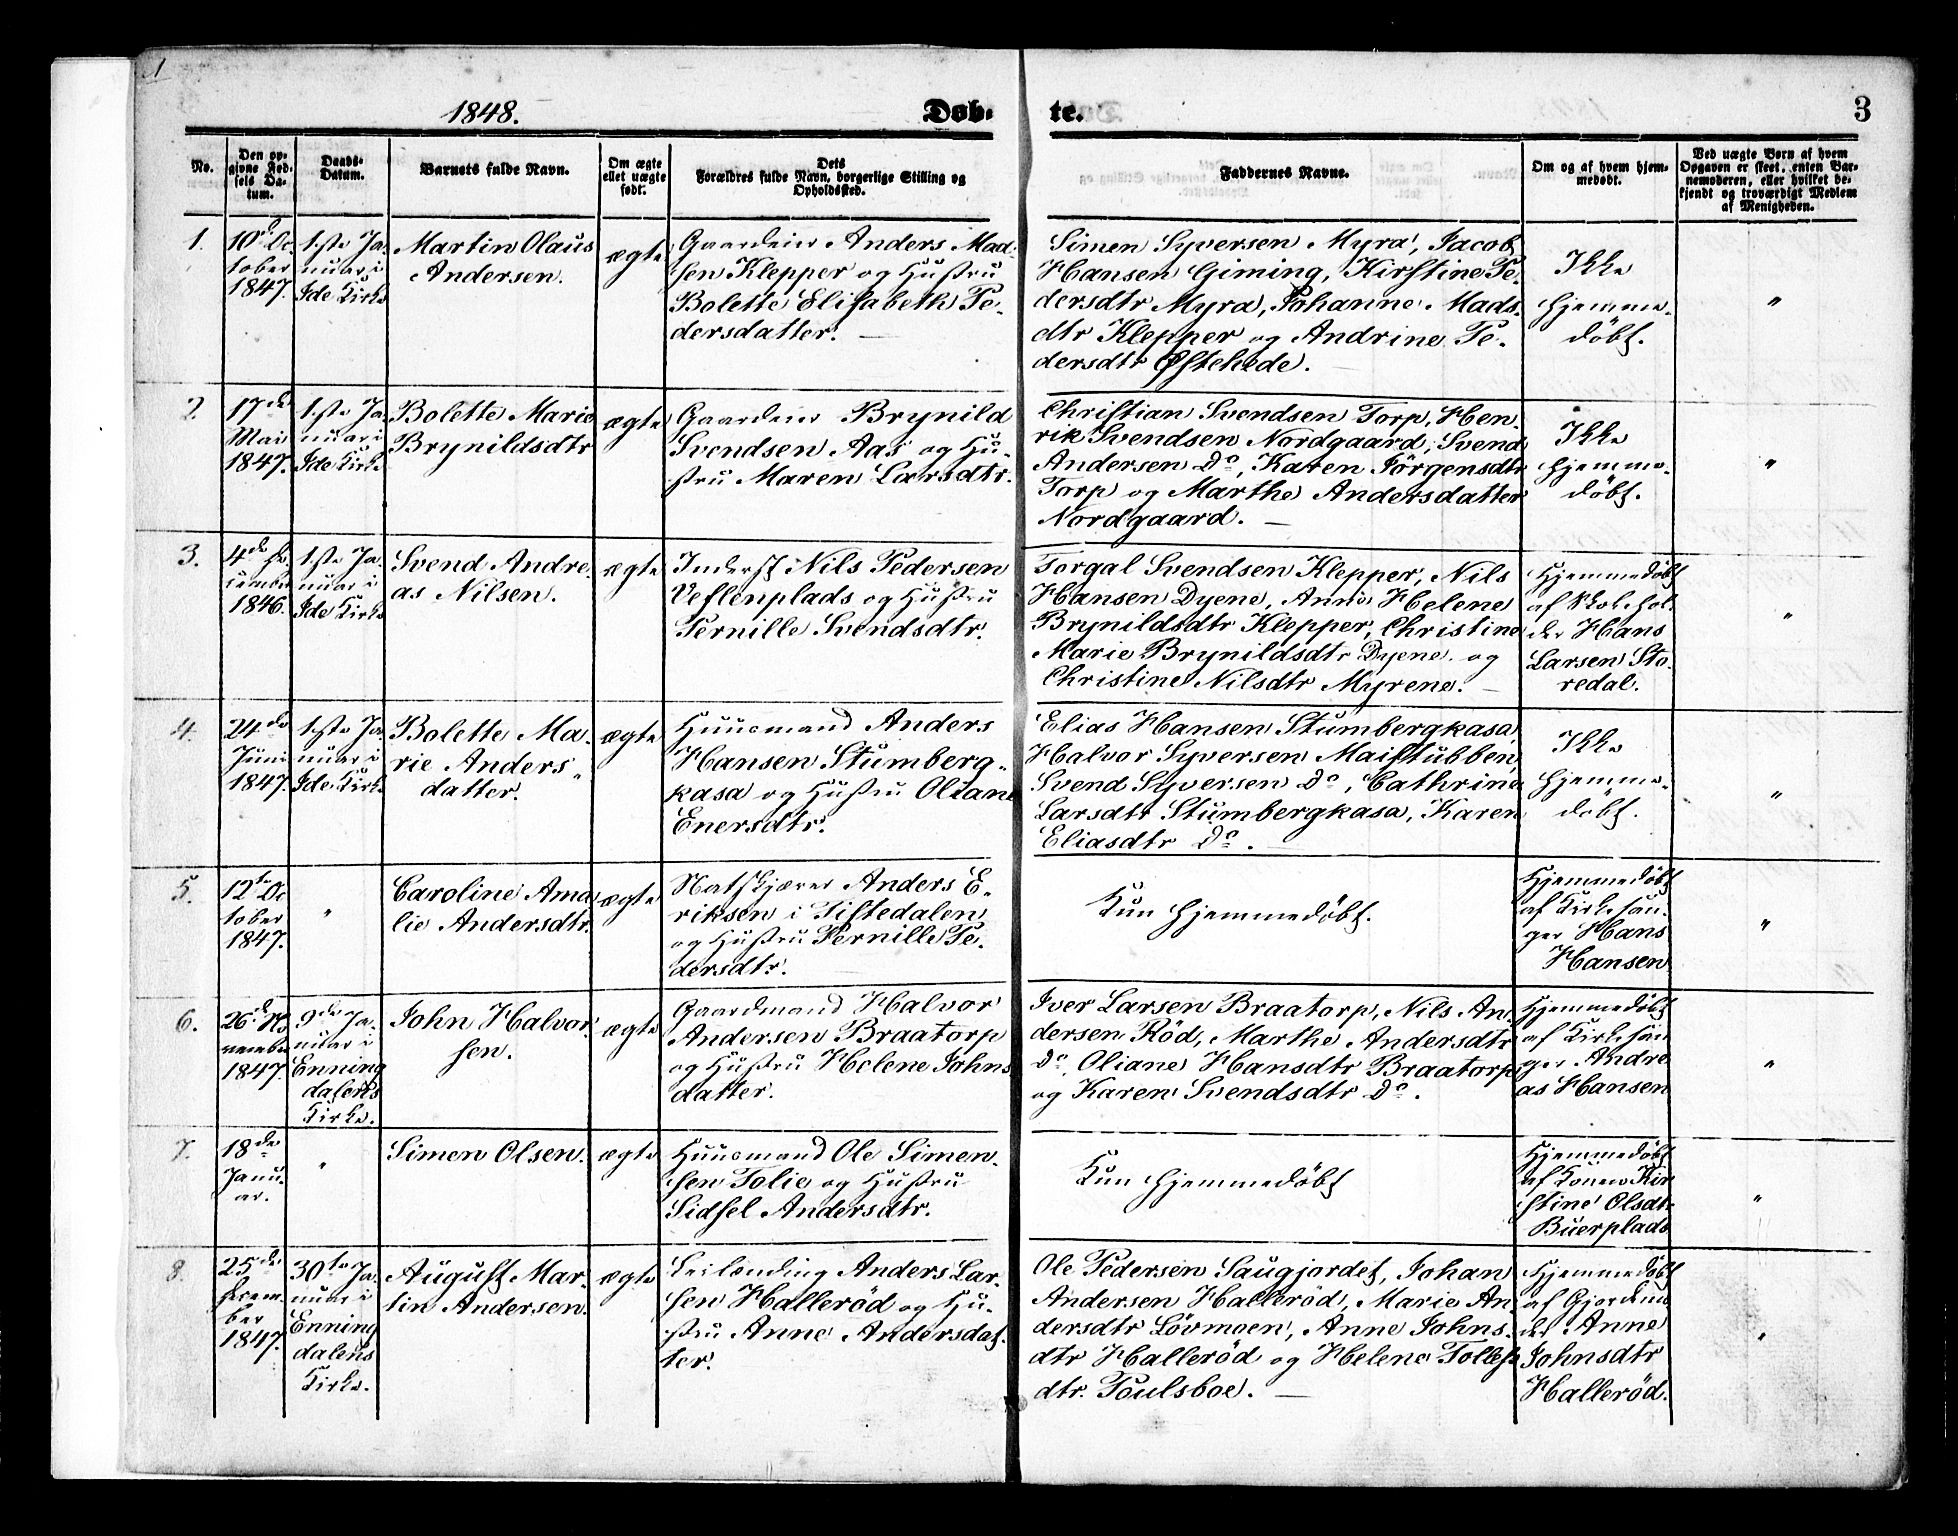 1
1848.
Døb-
te.
3
No.
Den op-
givne Fød-
sels Da-
tum.
Daabs-
Datum.
Barnets fulde Navn.
Om ægte
ellet uægte
født.
Dets
Forældres fulde Navn, borgerlige Stilling og
Opholdssted.
Faddernes Navne.
Om og af hvem hjem-
medøbt.
Ved uægte Børn af hvem
Opgaven er skeet, enten Bar-
nemoderen, eller hvilket be-
kjendt og troværdigt Medlem
af Menigheden.
1.
10de Oc
tober
1847.
1ste Ja-
nuar i
Ide Kirke
Martin Olaus
Andersen.
ægte
Gaardeier Anders Mad-
sen Klepper og Hustru
Bolette Elisabeth Pe-
dersdatter. —
Simen Syversen Myra, Jacob
Hansen Giming, Kirstine Pe-
dersdtr Myra, Johanne Mads-
dtr Klepper og Andrine Pe-
dersdtr Østehede.
Ikke
hjemme-
døbt.
"
2.
17de
Mai
1847.
1ste Ja-
nuar i
Ide Kirke
Bolette Marie
Brynildsdtr
ægte
Gaardeier Brynild
Svendsen Aas og Hu-
stru Maren Larsdtr.
Christian Svendsen Torp, Hen-
rik Svendsen Nordgaard, Svend
Andersen Do, Karen Jörgensdtr
Torp og Marthe Andersdatter
Nordgaard. —
Ikke
hjemme-
døbt.
"
3.
4de De-
cember
1846.
1ste Ja-
nuar i
Ide Kirke
Svend Andre-
as Nilsen.
ægte
Inderst Nils Pedersen
Veslenplads og Hustru
Pernille Svendsdtr.
Torgal Svendsen Klepper, Nils
Hansen Dyene, Anne Helene
Brynildsdtr Klepper, Christine
Marie Brynildsdtr Dyene og
Christine Nilsdtr Myrene. —
Hjemmedøbt
af Skolehol-
der Hans
Larsen Sto-
redal.
"
4.
24de
Juni
1847.
1ste Ja-
nuar i
Ide Kirke
Bolette Ma-
rie Anders-
datter.
ægte
Huusmand Anders
Hansen Stumberg-
kasa og Hustru Oliane
Enersdtr.
Elias Hansen Stumbergkasa,
Halvor Syversen Maistubben,
Svend Syversen Do, Cathrine
Larsdtr Stumbergkasa, Karen
Eliasdtr Do. —
Ikke
hjemme-
døbt.
"
5.
12te Oc
tober
1847.
"
Caroline Ama
lie Andersdtr.
ægte
Natskjærer Anders E-
riksen i Tistedalen
og Hustru Pernille Pe-
dersdtr.
Kun hjemmedöbt.
Hjemmedøbt
af Kirkesan-
ger Hans
Hansen
"
6.
26de No
vember
1847.
9de Ja-
nuar i
Enning
dalens
Kirke.
John Halvor-
sen.
ægte
Gaardmand Halvor
Andersen Braatorp
og Hustru Helene Johns
datter.
Iver Larsen Braatorp, Nils An-
dersen Röd, Marthe Andersdtr
do, Oliane Hansdtr Braatorp
og Karen Svendsdtr Do.
Hjemmedøbt
af Kirkesan
ger Andre
as Hansen
"
7.
18de
Janu-
ar.
"
Simen Olsen.
ægte
Huusmand Ole Simen-
sen Tolie og Hustru
Sidsel Andersdtr.
Kun hjemmedöbt
Hjemmedøbt
af Konen Kir
stine Olsdtr
Buerplads
"
8.
25de
Decem-
ber
1847.
30te Ja-
nuar i
Enning
dalens
Kirke.
August Mar-
tin Andersen.
ægte
Leilænding Anders Lar-
sen Halleröd og Hu-
stru Anne Andersdat-
ter.
Ole Pedersen Saugjordet, Johan
Andersen Halleröd, Marie An-
dersdtr Lövmoen, Anne Johns-
dtr Halleröd og Helene Tollefs
dtr. Poulsboe. —
Hjemmedøbt
af Gjordemo
der Anne
Johnsdtr
Halleröd.
"